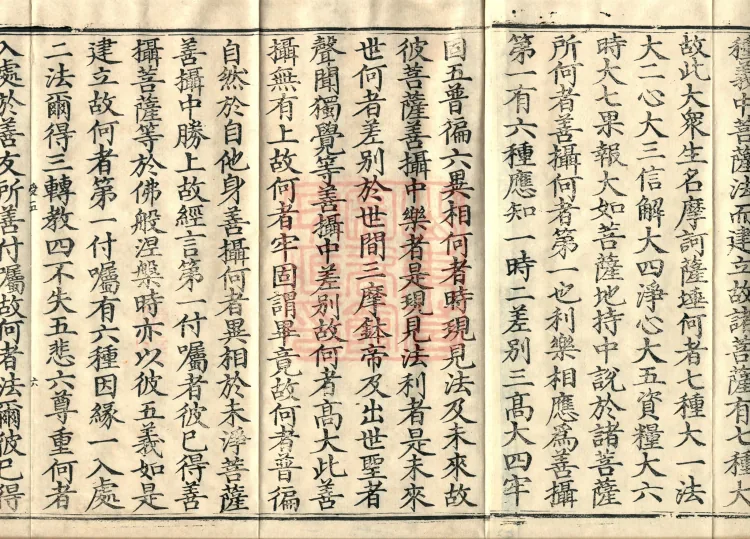 種義中菩薩法而建立故諸菩薩有七種大
故此大衆生名摩訶薩埵何者七種大一法
大二心大三信解大四淨心大五資糧大六
時大七果報大如菩薩地持中說於諸菩薩
所何者善攝何者第一也利樂相應爲善攝
第一有六種應知一時二差別三高大四牢
固五普徧六異相何者時現見法及未來故
彼菩薩善攝中樂者是現見法利者是未來
世何者差別於世間三摩鉢帝及出世聖者
聲聞獨覺等善攝中差別故何者高大此善
攝無有上故何者牢固謂畢竟故何者普徧
自然於自他身善攝何者異相於未淨菩薩
善攝中勝上故經言第一付囑者彼已得善
攝菩薩等於佛般涅槃時亦以彼五義如是
建立故何者第一付囑有六種因緣一入處
二法爾得三轉教四不失五悲六尊重何者
六
入處於善友所善付囑故何者法爾彼已得